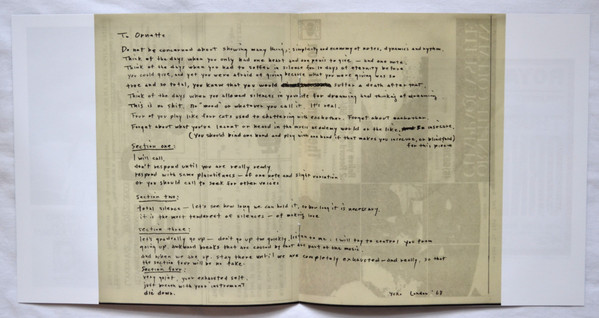 To Ornette
Do not be concerned about showing many things: simplicity and economy of notes, dynamics and rhythm.
Think of the days when you only had one bread and one penis to give — and one note.
Think of the days when you had to suffer in silence for 10 days of eternity before
you could give, and yet you were afraid of giving because what you were giving was so
true and so total, you knew that you would suffer a death after that.
Think of the days when you allowed silences in your life for dreaming and thinking of dreaming.
This is no shit. No 'mood' or whatever you call it. It's real.
Four of you play like four cats used to chattering with each other. Forget about
Forget about what you've learnt or heard in the music academy world or the like. Be insecure,
(You should bind one hand and play with one hand, if that makes you insecure, or blindfold)
for this piece
Section one:
I will call,
don't respond until you are really ready
respond with same plaintiveness — of one note and slight variation
or you should call to seek for other voices
Section two:
total silence — let's see how long we can hold it, or how long it is necessary.
it is the most tenderest of silences — of making love
Section three:
let's gradually go up — don't go up too quickly, listen to me: I will try to control you even
going up. awkward beats that are caused by that are part of the music
and when we are up, stay there until we are completely exhausted — and really, so that
the section four will be no fake.
Section four:
very quiet. your exhausted self.
just breath with your instrument
die down.
Yoko London '68